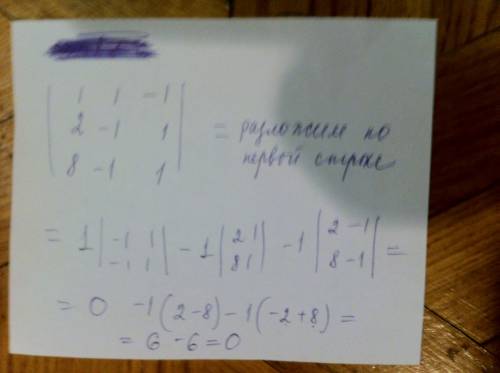 | 1 1 -1 |
| 2 -1 1 | = разложим по
| 8 -1 1 | первой строке
= 1 | -1 1 | - 1 | 2 1 | - 1 | 2 -1 | =
| -1 1 | | 8 1 | | 8 -1 |
= 0 -1(2-8)-1(-2+8) =
= 6 - 6 = 0